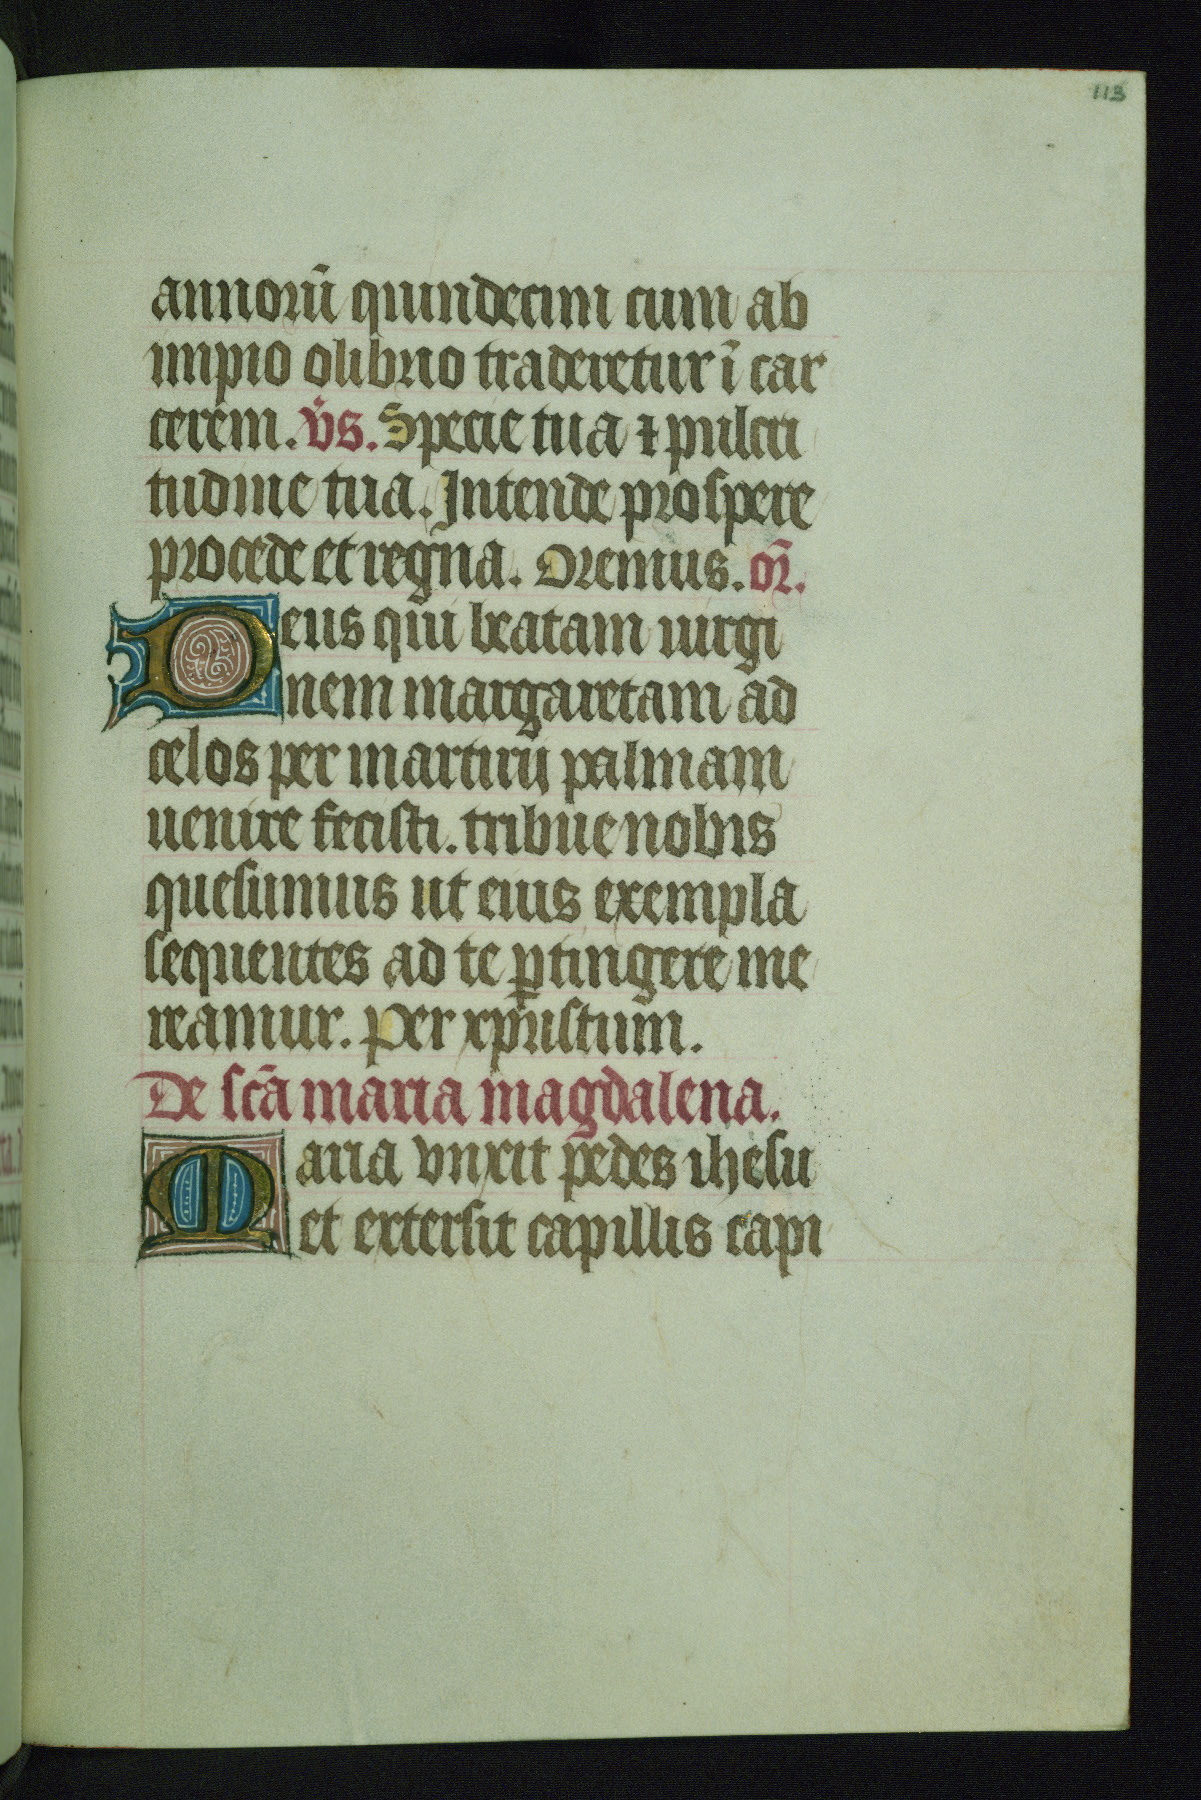 113
annorū quindecim cum ab
impio olibrio traderetur ī car
cerem. v̄s. Specie tua ⁊ pulcri
tudine tua. Intende prospere
procede et regna. Oremus. or̄.
Deus qui beatam uirgi
nem margaretam ad
celos per martirij palmam
uenire fecisti. tribue nobis
quesumus ut eius exempla
sequentes ad te ꝑtingere me
reamur. Per xpristum.
De sc̄a maria magdalena.
Maria vnxit pedes ihesu
et extersit capillis capi